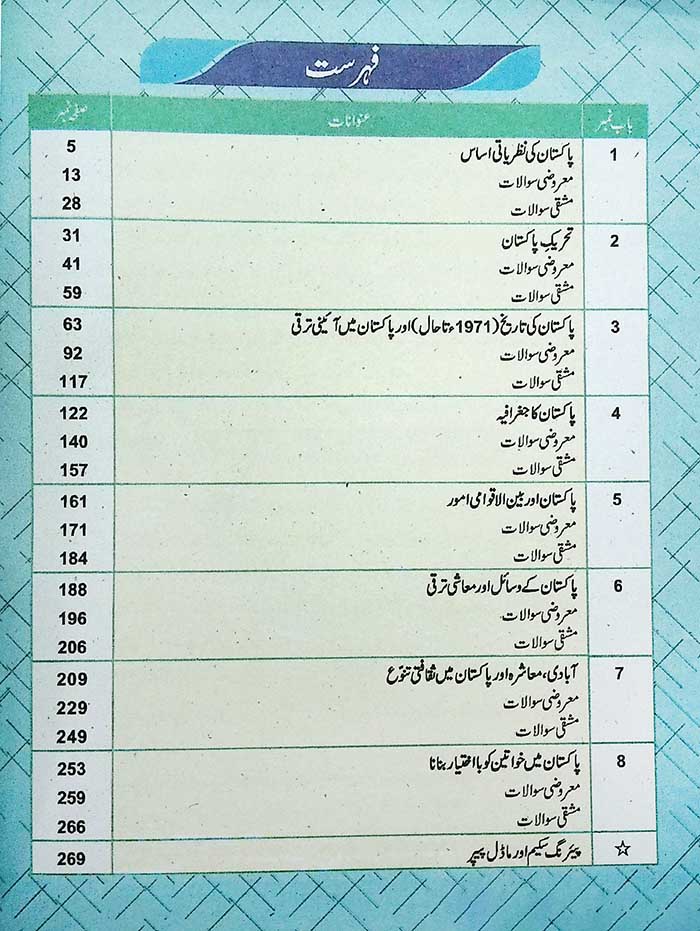 فہرست
باب نمبر عنوانات صفحہ نمبر
1 پاکستان کی نظریاتی اساس 5
معروضی سوالات 13
مشقی سوالات 28
2 تحریکِ پاکستان 31
معروضی سوالات 41
مشقی سوالات 59
3 پاکستان کی تاریخ (1971ء تا حال) اور پاکستان میں آئینی ترقی 63
معروضی سوالات 92
مشقی سوالات 117
4 پاکستان کا جغرافیہ 122
معروضی سوالات 140
مشقی سوالات 157
5 پاکستان اور بین الاقوامی امور 161
معروضی سوالات 171
مشقی سوالات 184
6 پاکستان کے وسائل اور معاشی ترقی 188
معروضی سوالات 196
مشقی سوالات 206
7 آبادی، معاشرہ اور پاکستان میں ثقافتی تنوّع 209
معروضی سوالات 229
مشقی سوالات 249
8 پاکستان میں خواتین کو بااختیار بنانا 253
معروضی سوالات 259
مشقی سوالات 266
☆ پیئرنگ سکیم اور ماڈل پیپر 269